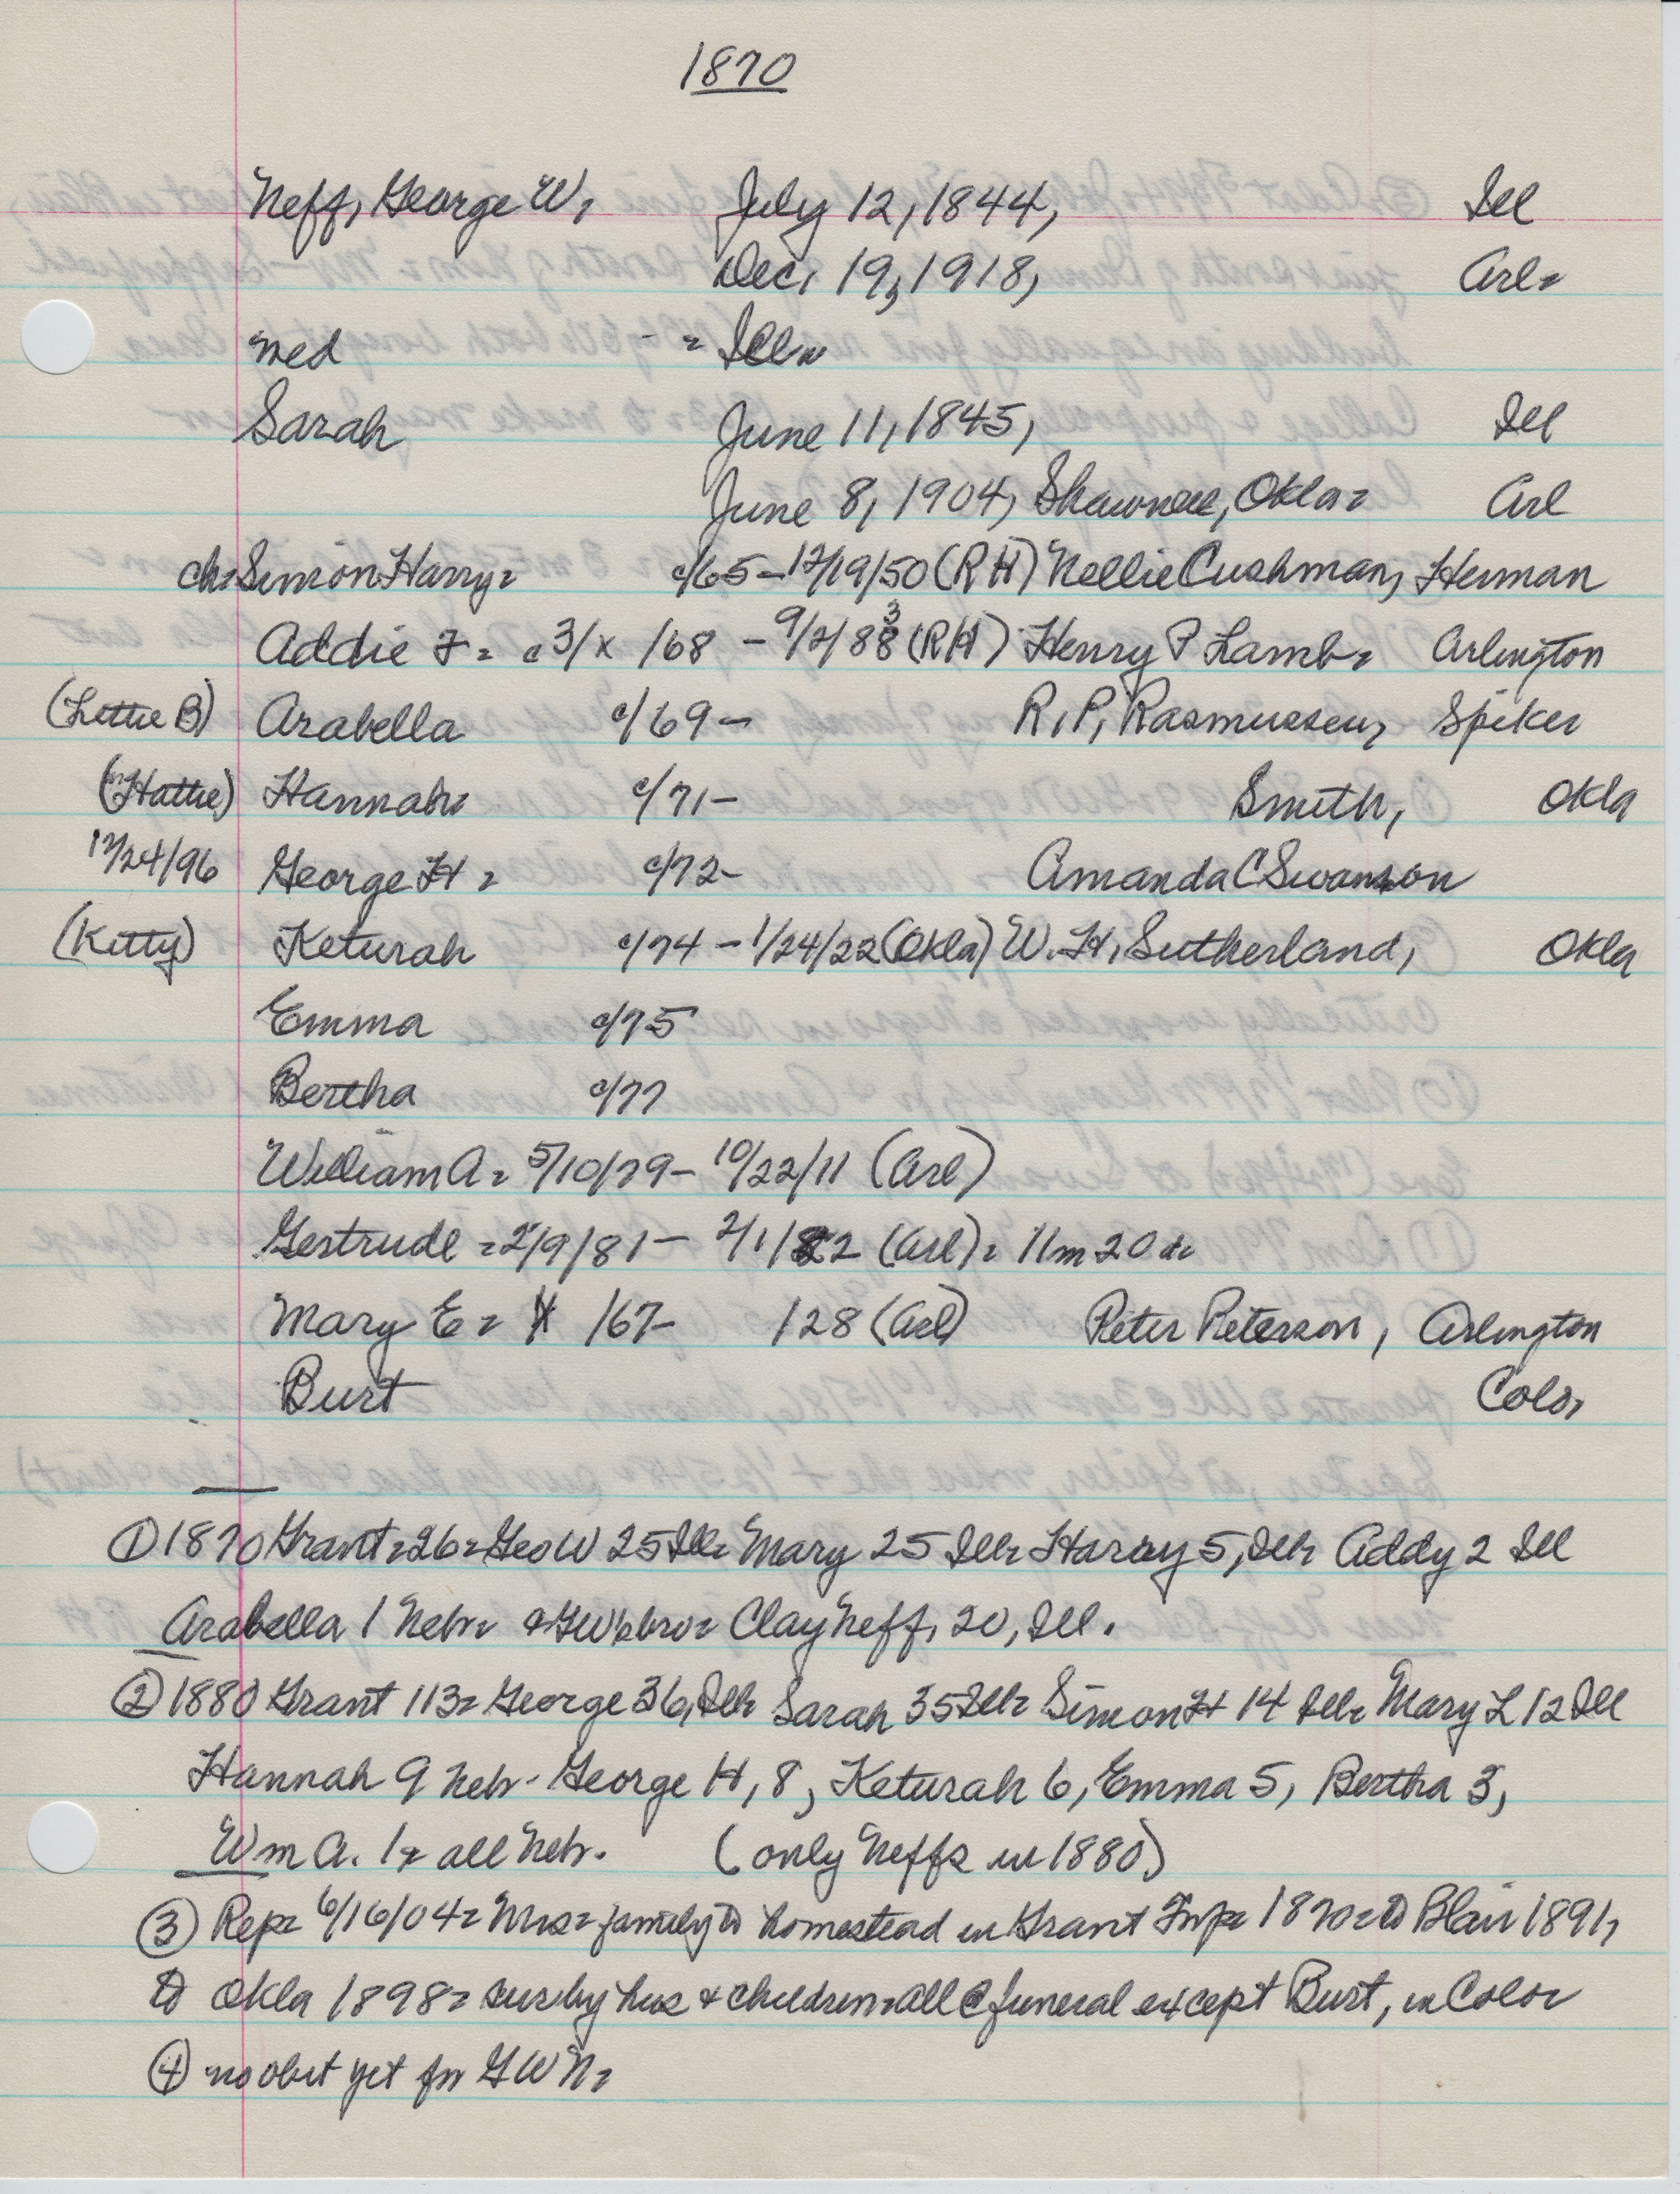 1870
Neff, George W, July 12, 1844, Ill
Dec, 19, 1918, Arl=
med - = Ill=
Sarah June 11, 1845, Ill
June 8, 1904, Shawnee, Okla= Arl
ch= Simon Harry= c/65 - 12/19/50 (RH) Nellie Cushman, Herman
Addie F= c 3/x /68 - 9/2/88 3 (RH) Henry P Lamb= Arlington
(Lettie B) Arabella c/69 - R, P, Rasmussen, Spiker
(Hattie) Hannah= c/71 - Smith, Okla
12/24/96 George H= c/72 - Amanda C Swanson
(Kitty) Keturah c/74 - 1/24/22 (Okla) W. H, Sutherland, Okla
Emma c/75
Bertha c/77
William A= 5/10/79 - 10/22/11 (Arl)
Gertrude = 2/9/81 - 2/1/82 (Arl) = 11m 20 d=
Mary E= X /67 - /28 (Arl) Peter Peterson, Arlington
Burt Colo,
① 1870 Grant=26=Geo W 25 Ill= Mary 25 Ill= Harry 5, Ill= Addy 2 Ill
Arabella 1 Nebr= & GW's bro= Clay Neff, 20, Ill.
② 1880 Grant 113= George 36, Ill= Sarah 35 Ill= Simon H 14 Ill= Mary L 12 Ill
Hannah 9 Nebr- George H, 8, Keturah 6, Emma 5, Bertha 3,
Wm A. 1= all Nebr. (only Neffs in 1880)
③ Rep= 6/16/04= Mrs= family to homestead in Grant Twp= 1870= to Blair 1891,
to Okla 1898= sur by hus & children= all @ funeral except Burt, in Colo=
④ no obit yet for GWN=